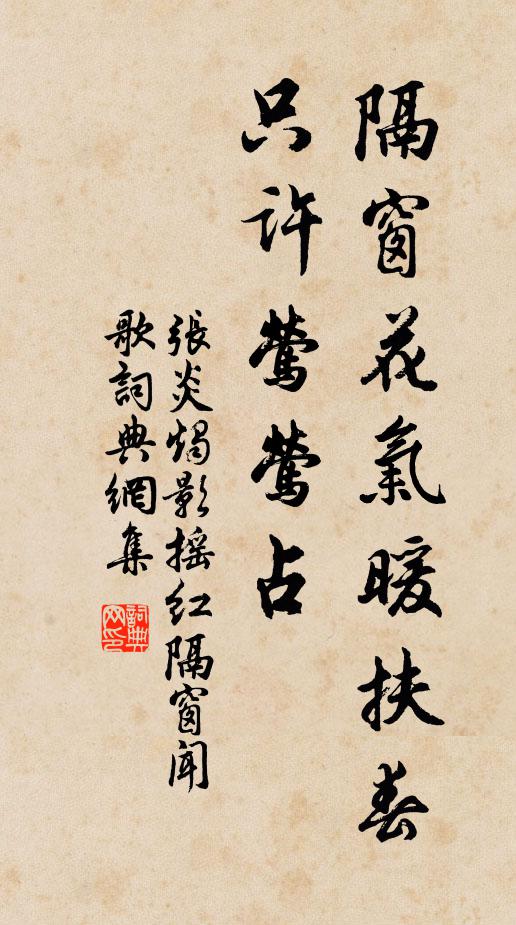 隔窗花氣暖扶春
只許鶯鶯占
張炎燭影摇紅隔窗聞
歌詞典網集
詞典
网印